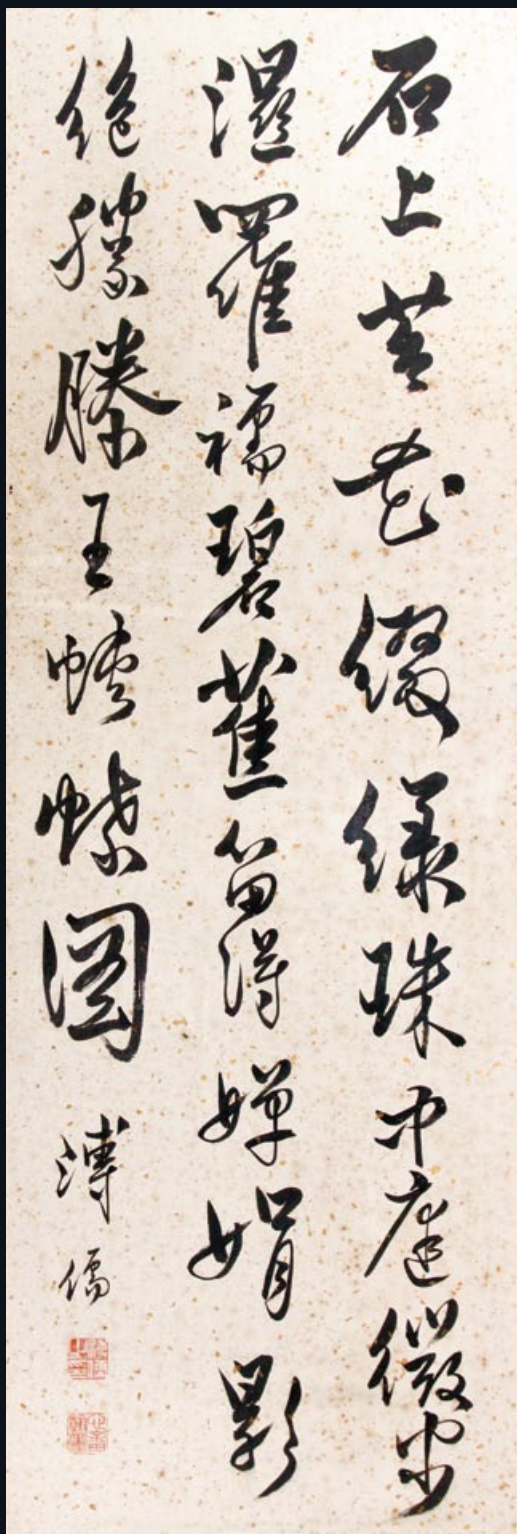 石上苔花綴綠珠中庭微雨
濕羅襦碧蕉留得嬋娟影
絕勝滕王蛺蝶圖
溥儒